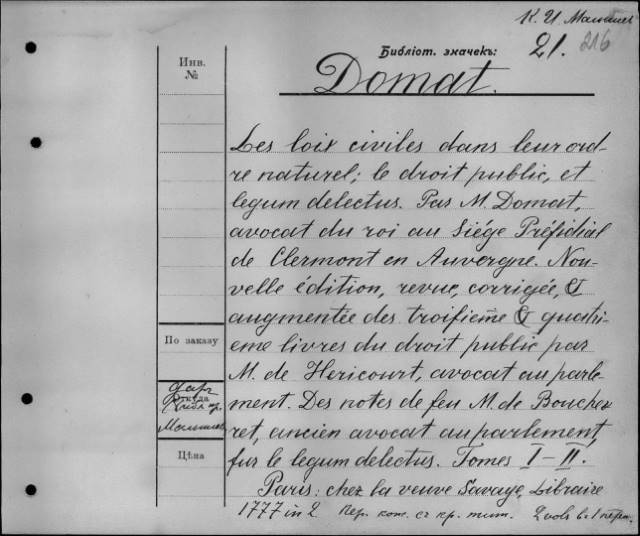 К. И. Малышев
Библіот. значекъ: 21. 216
Инв.
№
Domat.
Les loix civiles dans leur ord-
re naturel; le droit public, et
legum delectus. Pas M. Domat,
avocat du roi au Siége Préfidial
de Clermont en Auvergne. Nou-
velle édition, revue, corrigée, &
augmentée des troifieme & quatri-
eme livres du droit public par
По заказу
M. de Hericourt, avocat au parle-
Откуда
ment. Des notes de feu M. de Bouchev-
ret, ancien avocat au parlement,
fur le legum delectus. Tomes I–II.
Цѣна
Paris: chez la veuve Savage, Libraire
1777 in 2 Пер. кож. съ кр. тит. 2 vols въ 1 перпл.